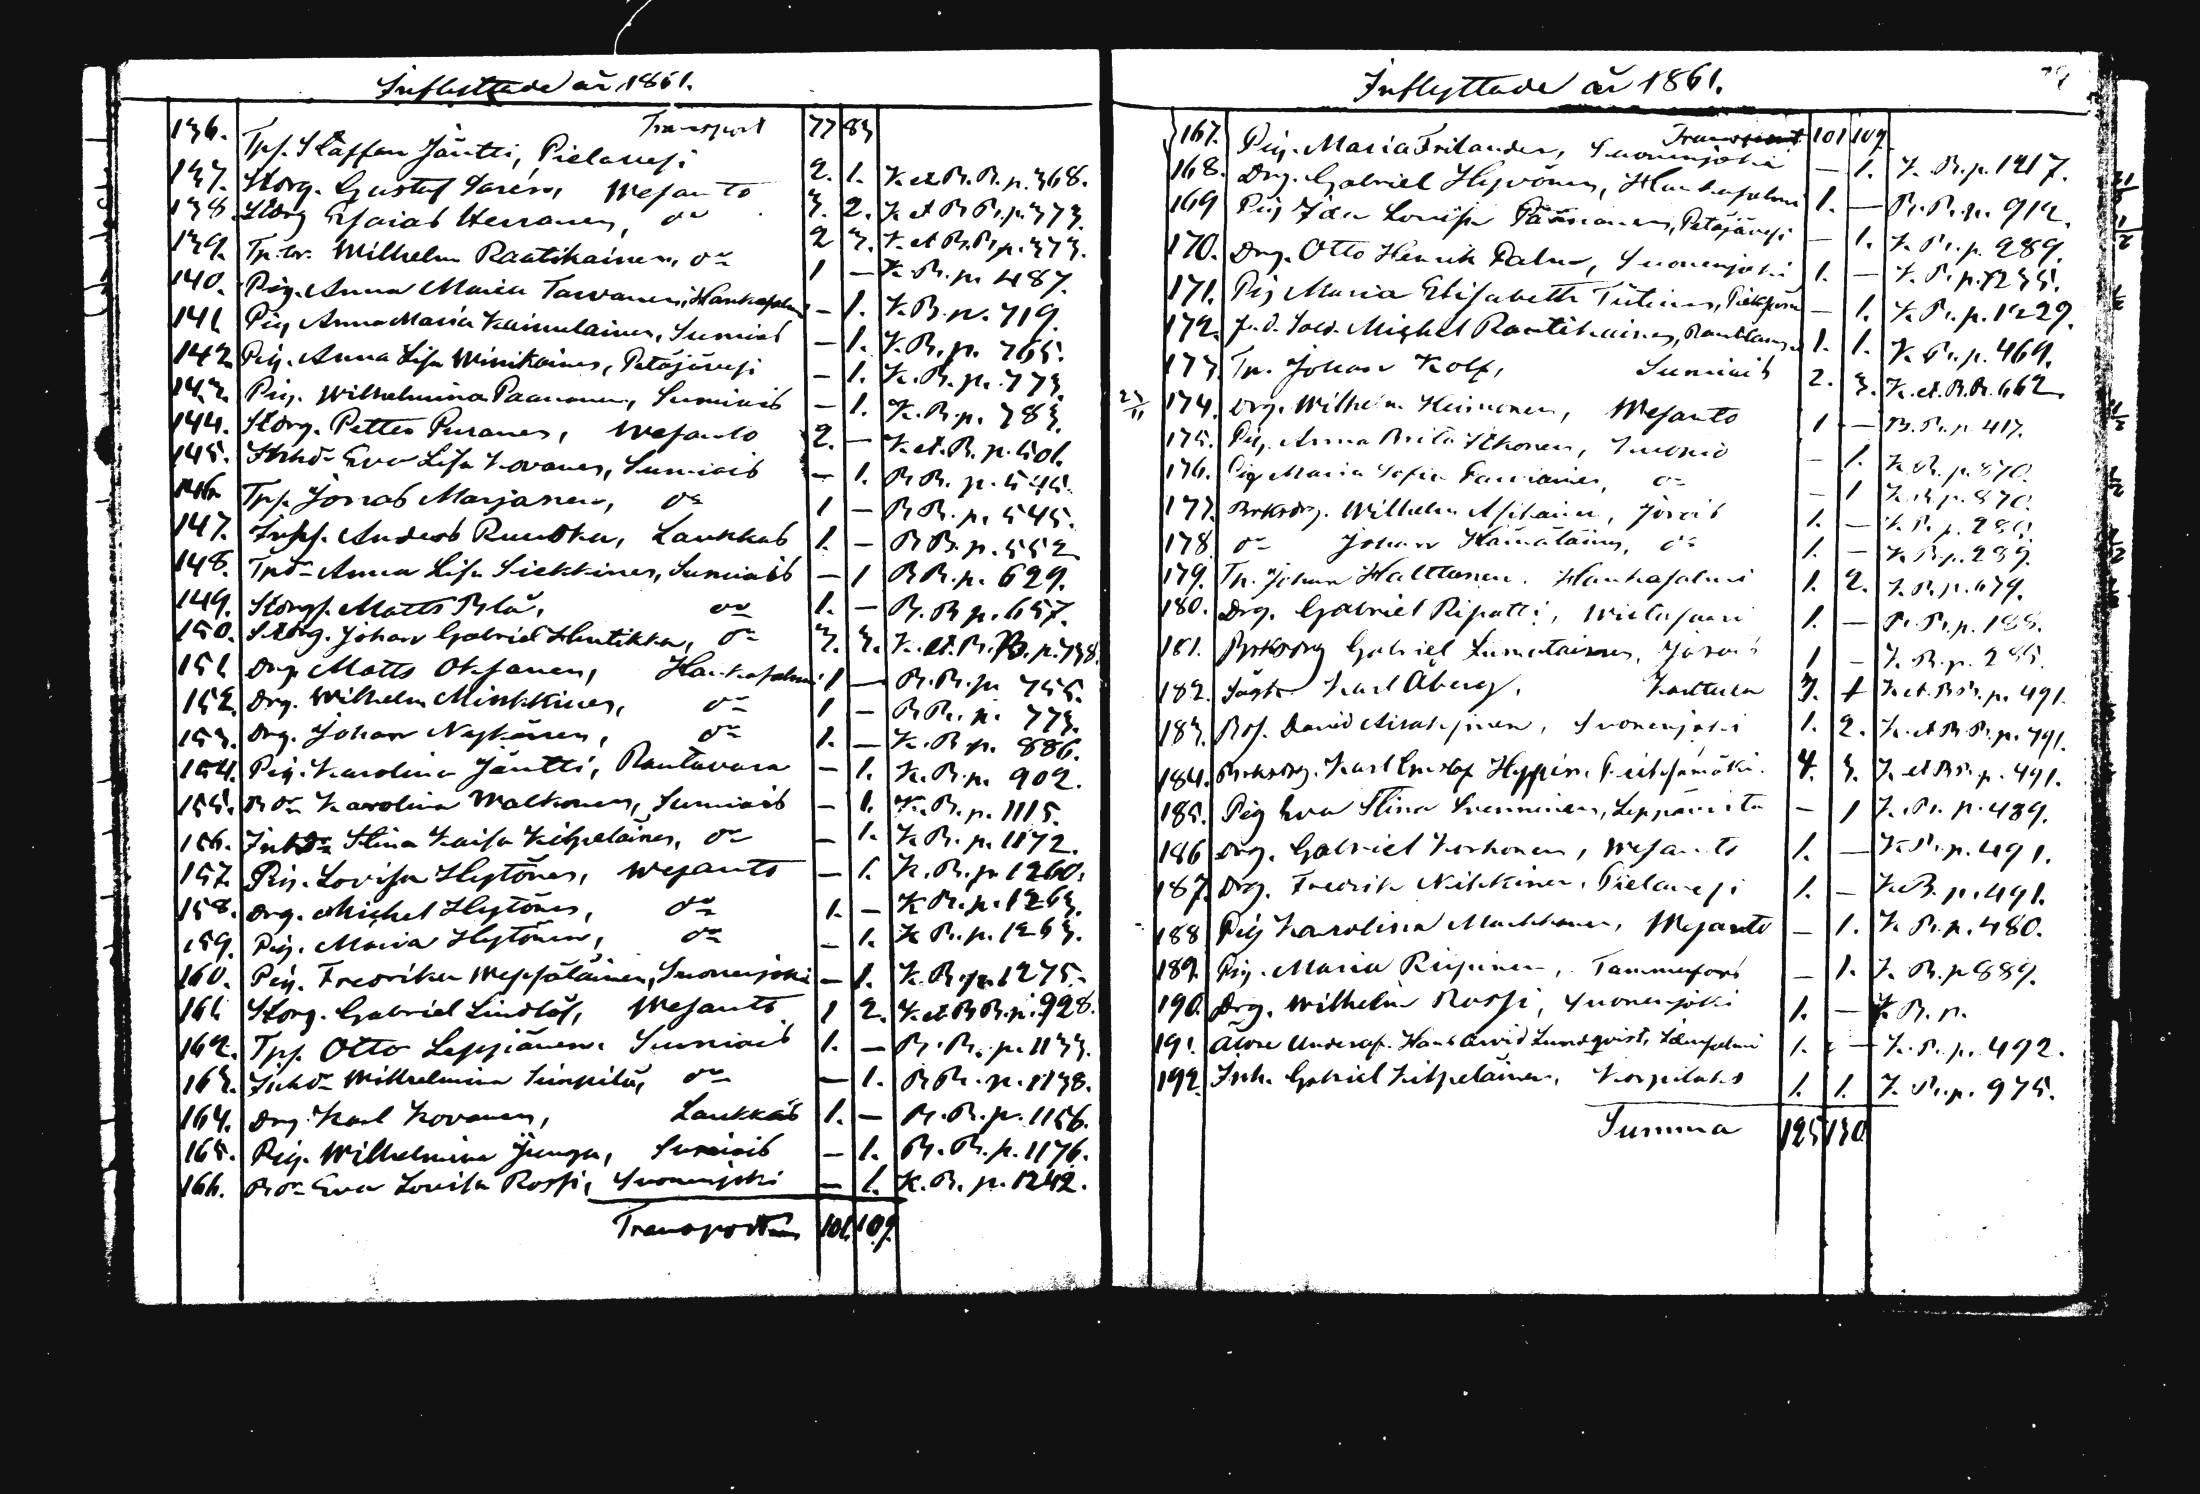 Inflyttade år 1861.
Transport 77 83
136. Tpf. Staffan Jäntti, Pielavesi 2. 1. K. et B. B. p. 368.
137. Storg. Gustaf Worén, Wesanto 3. 2. K et B B. p. 373.
138. Storg Esaias Herranen, do 2 3. K. et B. B. p. 373.
139. Tp. br. Wilhelm Raatikainen, do 1 — K. B. p. 487.
140. Pig. Anna Maria Tarvanen, Hankasalmi — 1. K. B. p. 719.
141. Pig Anna Maria Kainulainen, Sumiais — 1. K. B. p. 765.
142 Pig. Anna Lisa Minikainen, Petäjävesi — 1. K. B. p. 773.
143. Pig. Wilhelmina Paananen, Sumiais — 1. K. B. p. 783.
144. Storg. Petter Puranen, Wesanto 2. — K. et. B. p. 501.
145. Eva Lisa Kovanen, Sumiais — 1. B B. p. 545.
146. Tpf. Jonas Marjanen, do 1 — B B. p. 545.
147. Anders Ruuska, Laukkas 1. — B B. p. 552
148. Anna Lisa Siekkinen, Sumiais — 1 B B. p. 629.
149. Matts Blå, do 1. — B. B p. 657.
150. Storg. Johan Gabriel Hintikka, do 3. 3. K. et. B. B. p. 738.
151. Drg Matts Oksanen, Hankasalmi 1 — B. B. p. 755.
152. Drg. Wilhelm Minkkinen, do 1 — B B. p. 773.
153. Drg. Johan Nykänen, do 1. — K. B p. 886.
154. Pig. Karolina Jäntti, Rautavara — 1. K. B. p. 902.
155. Karolina Malkonen, Sumiais — 1. K. B. p. 1115.
156. Stina Kaisa Kilpeläinen, do — 1. K B. p. 1172.
157. Pig. Lovisa Hytönen, Wesanto — 1. K. B. p. 1260.
158. Drg. Michel Hytönen, do 1. — K B. p. 1263.
159. Pig. Maria Hytönen, do — 1. K B. p. 1263.
160. Pig. Fredrika Wepsäläinen, Suonenjoki — 1. K. B. p. 1275.
161 Storg. Gabriel Lindlöf, Wesanto 1 2. K. et B B. p. 928.
162. Tpf. Otto Leppänen. Sumiais 1. — B. B. p. 1133.
163. Wilhelmina Simpilä, do — 1. B B. p. 1138.
164. Drg. Karl Kovanen, Laukkas 1. — B. B. p. 1156.
165. Pig. Wilhelmina Junga, Sumiais — 1. B. B. p. 1176.
166. Eva Lovisa Rossi, Suonenjoki — 1. K. B. p. 1242.
Transport 101. 109.
Inflyttade år 1861.
Transport 101 109
167. Pig. Maria Frilander, Suonenjoki — 1. K. B. p. 1217.
168. Drg. Gabriel Hyvönen, Hankasalmi 1. — B. B. p. 912.
169 Pig Ida Lovisa Päänanen, Petäjävesi — 1. K B. p. 289.
170. Drg. Otto Henrik Palm, Suonenjoki 1. — K. B. p. 1235.
171. Pig Maria Elisabeth Tiitinen, — 1. K. B. p. 1229.
172. Michel Rautiainen, Rautalampi 1. 1. K B. p. 469.
173. Tp. Johan Kolf, Sumiais 2. 3. K. et. B. B. 662
174. Drg. Wilhelm Heinonen, Wesanto 1 — B. B. p 417.
175. Pig. Anna Brita Itkonen, — 1. K. B. p. 870.
176. Pig Maria Sofia do — 1 K. B. p. 870.
177. Wilhelm Asikainen, Jorois 1. — K B. p. 289.
178. do Johan Hämäläinen, do 1. — K B. p. 289.
179. Tp. Johan Halttunen. Hankasalmi 1. 2. K B. p. 679.
180. Drg. Gabriel Ripatti, Wiitasaari 1. — B. B. p. 188.
181. Gabriel Lumatainen, Jorois 1 — K. B. p. 285.
182. Karl Åberg, Karttula 3. 1 K et. B B. p. 491.
183. David Airaksinen, Suonenjoki 1. 2. K. et B B. p. 491.
184. Karl Gustaf Hyppön. 4. 3. K et B B. p. 491.
185. Pig Eva Stina Svenninen, Leppävirta — 1 K. B. p. 489.
186 Drg. Gabriel Korhonen, Wesanto 1. — K B. p. 491.
187. Drg. Fredrik Nikkinen. Pielavesi 1. — K. B. p. 491.
188 Pig Karolina Markkanen, Wesanto — 1. K B. p. 480.
189. Pig. Maria Riipinen, Tammerfors — 1. K B. p 889.
190. Drg. Wilhelm Rossi, Suonenjoki 1. — K. B. p.
191. Hans Arvid Lundqvist, Idensalmi 1. — K. B. p. 492.
192. Inh. Gabriel Kilpeläinen, Korpilaks 1. 1. K. B. p. 975.
Summa 125 130